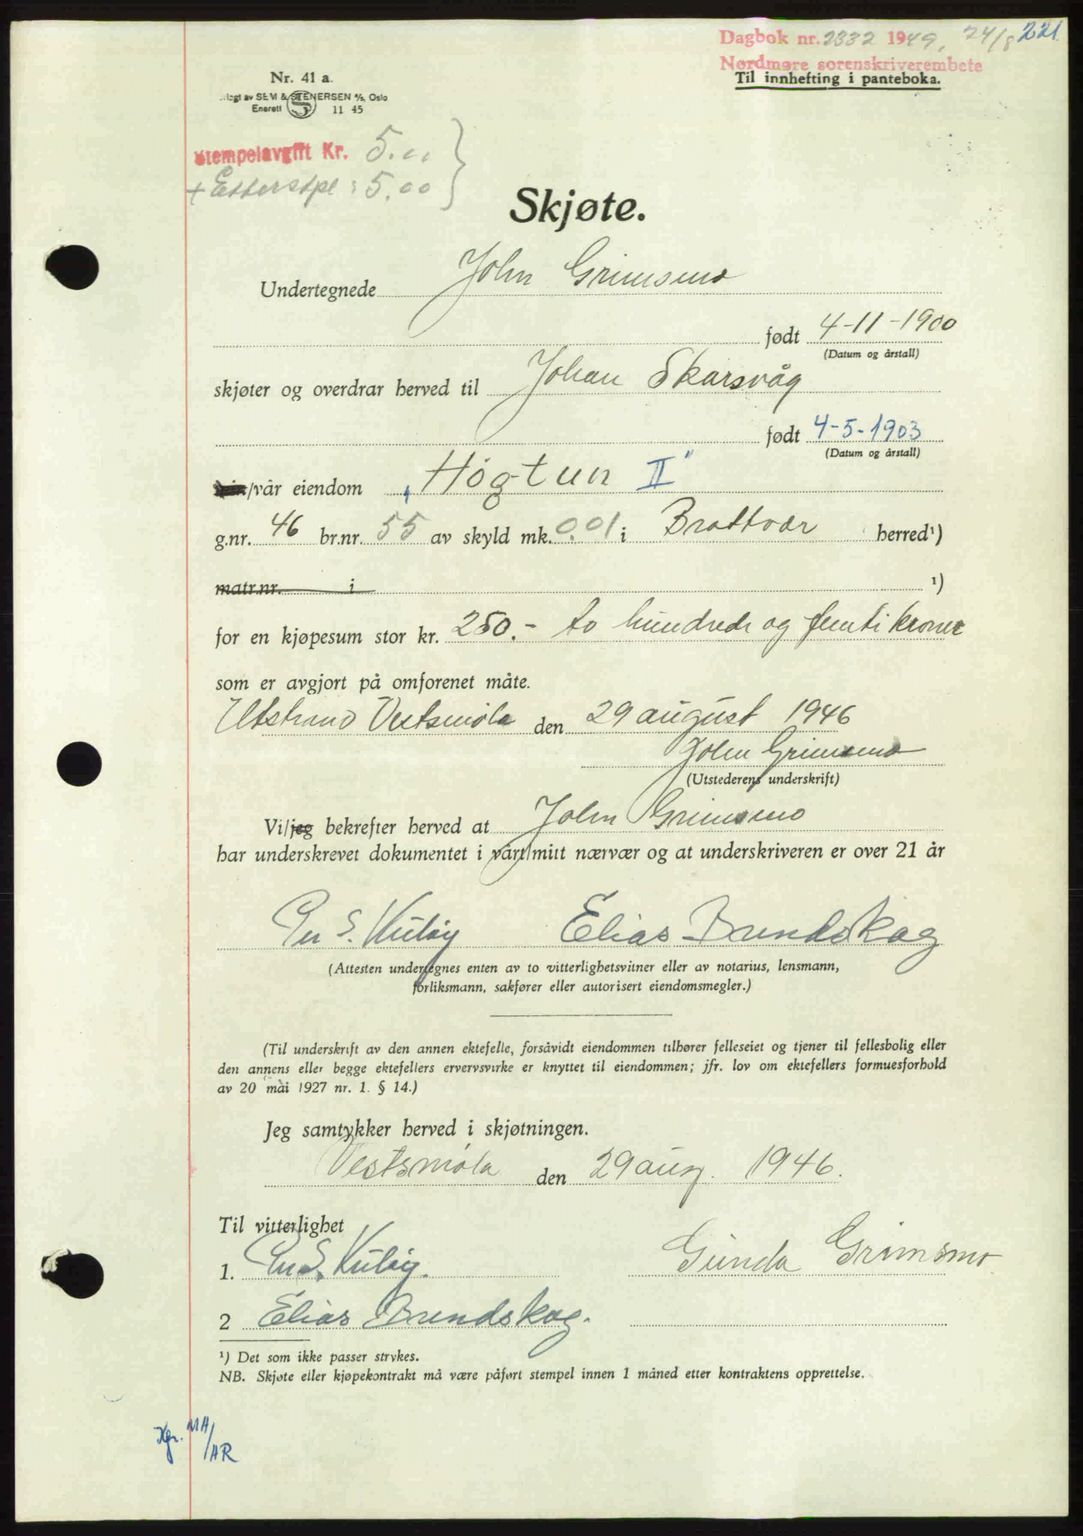 Dagbok nr. 2332 1949, 24/8 221
Nordmøre sorenskriverembete
Til innhefting i panteboka.
Nr. 41 a.
SEM & STENERSEN A/S, Oslo
Enerett S 11 45
Stempelavgift Kr. 5.00
+ Etterstpl: 5.00
Skjøte.
Undertegnede John Grimsmo
født 4-11-1900
(Datum og årstall)
skjøter og overdrar herved til Johan Skarsvåg
født 4-5-1903
(Datum og årstall)
min/vår eiendom „Høgtun II"
g.nr. 46 br.nr. 55 av skyld mk. 0.01 i Brattvær herred¹)
matr.nr. i ¹)
for en kjøpesum stor kr. 250.- to hundrede og femti kroner
som er avgjort på omforenet måte.
Utstrand Vestsmøla den 29 august 1946
John Grimsmo
(Utstederens underskrift)
Vi/jeg bekrefter herved at John Grimsmo
har underskrevet dokumentet i vårt/mitt nærvær og at underskriveren er over 21 år
S. Kuløy Elias Brundskag
(Attesten undertegnes enten av to vitterlighetsvitner eller av notarius, lensmann,
forliksmann, sakfører eller autorisert eiendomsmegler.)
(Til underskrift av den annen ektefelle, forsåvidt eiendommen tilhører felleseiet og tjener til fellesbolig eller
den annens eller begge ektefellers ervervsvirke er knyttet til eiendommen; jfr. lov om ektefellers formuesforhold
av 20 mai 1927 nr. 1. § 14.)
Jeg samtykker herved i skjøtningen.
Vestsmøla den 29 aug. 1946.
Til vitterlighet
1. S. Kuløy. Gunda Grimsmo
2 Elias Brundskag.
¹) Det som ikke passer strykes.
NB. Skjøte eller kjøpekontrakt må være påført stempel innen 1 måned etter kontraktens opprettelse.
Kgr. MA/AR